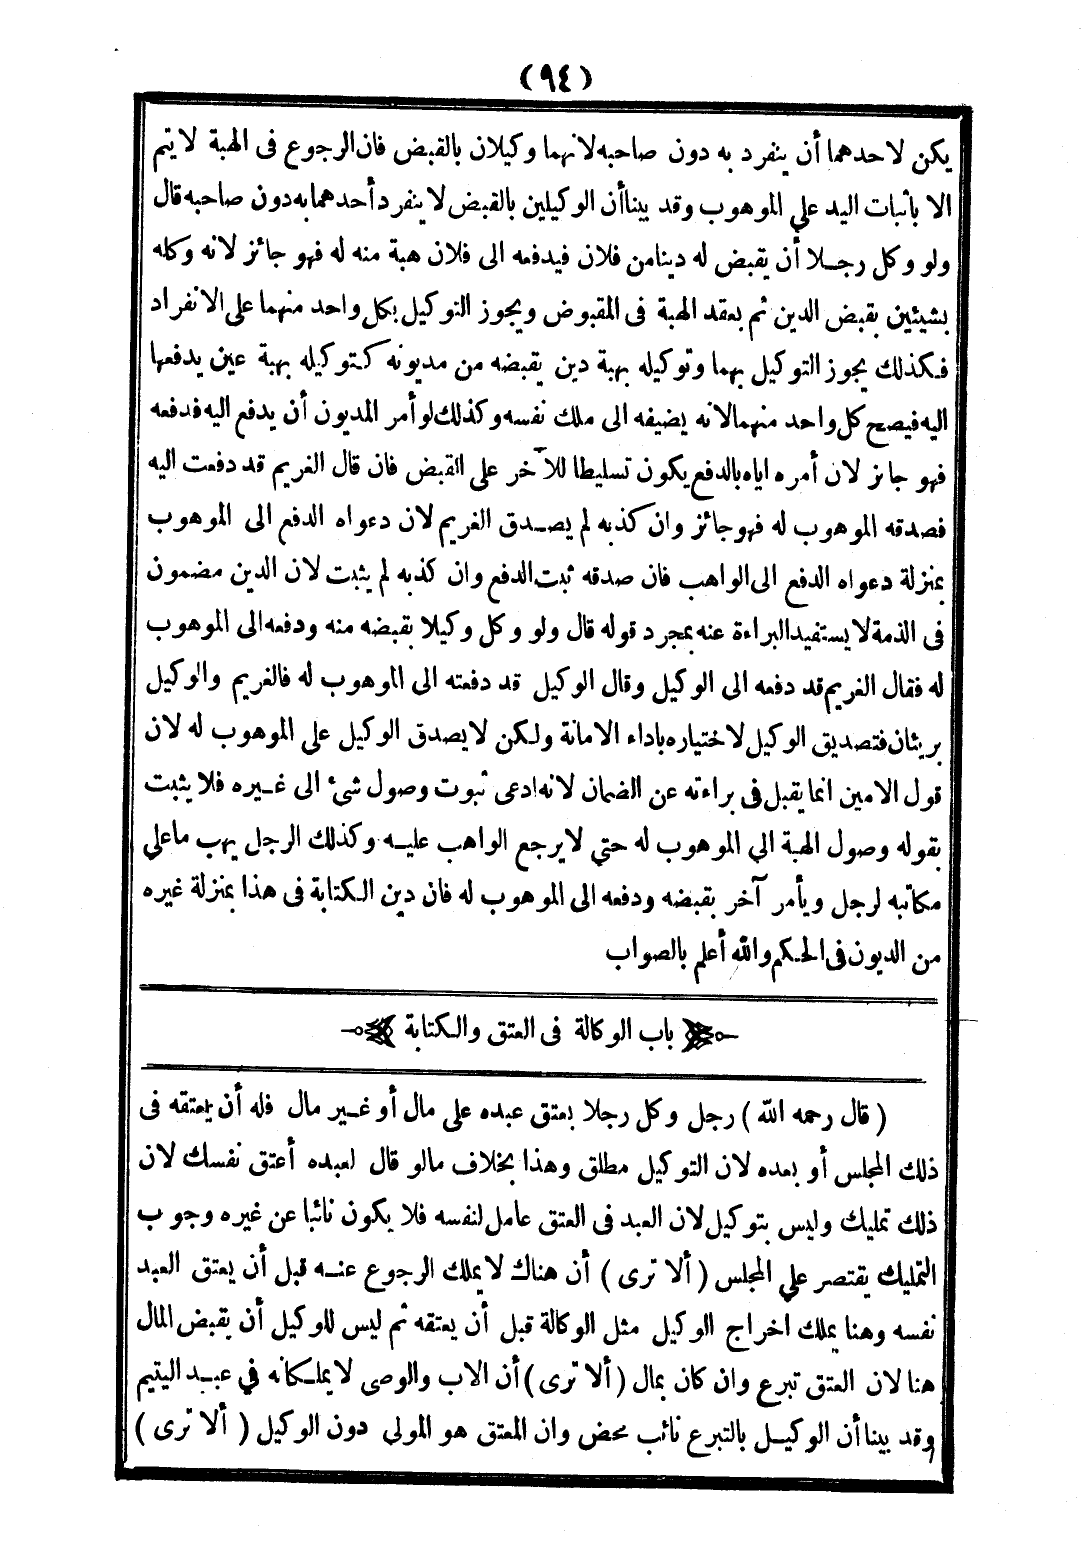 (٩٤)
يكن لاحدهما أن ينفرد به دون صاحبه لانهما وكيلان بالقبض فان الرجوع فى الهبة لا يتم
الا باثبات اليد علي الموهوب وقد بينا أن الوكيلين بالقبض لا ينفرد أحدهما به دون صاحبه قال
ولو وكل رجلا أن يقبض له دينا من فلان فيدفعه الى فلان هبة منه له فهو جائز لانه وكله
بشيئين بقبض الدين ثم بعقد الهبة فى المقبوض ويجوز التوكيل بكل واحد منهما على الانفراد
فكذلك يجوز التوكيل بهما وتوكيله بهبة دين يقبضه من مديونه كتوكيله بهبة عين يدفعها
اليه فيصح كل واحد منهما لانه يضيفه الى ملك نفسه وكذلك لو أمر المديون أن يدفع اليه فدفعه
فهو جائز لان أمره اياه بالدفع يكون تسليطا للآخر على القبض فان قال الغريم قد دفعت اليه
فصدقه الموهوب له فهو جائز وان كذبه لم يصدق الغريم لان دعواه الدفع الى الموهوب
بمنزلة دعواه الدفع الى الواهب فان صدقه ثبت الدفع وان كذبه لم يثبت لان الدين مضمون
فى الذمة لا يستفيد البراءة عنه بمجرد قوله قال ولو وكل وكيلا بقبضه منه ودفعه الى الموهوب
له فقال الغريم قد دفعه الى الوكيل وقال الوكيل قد دفعته الى الموهوب له فالغريم والوكيل
بريئان فتصديق الوكيل لاختياره باداء الامانة ولكن لا يصدق الوكيل على الموهوب له لان
قول الامين انما يقبل فى براءته عن الضمان لانه ادعى ثبوت وصول شئ الى غيره فلا يثبت
بقوله وصول الهبة الي الموهوب له حتي لا يرجع الواهب عليه وكذلك الرجل يهب ما علي
مكاتبه لرجل ويأمر آخر بقبضه ودفعه الى الموهوب له فان دين الكتابة فى هذا بمنزلة غيره
من الديون فى الحكم والله أعلم بالصواب
باب الوكالة فى العتق والكتابة
(قال رحمه الله) رجل وكل رجلا بعتق عبده على مال أو غير مال فله أن يعتقه فى
ذلك المجلس أو بعده لان التوكيل مطلق وهذا بخلاف مالو قال لعبده أعتق نفسك لان
ذلك تمليك وليس بتوكيل لان العبد فى العتق عامل لنفسه فلا يكون نائبا عن غيره وجوب
التمليك يقتصر علي المجلس (ألا ترى) أن هناك لا يملك الرجوع عنه قبل أن يعتق العبد
نفسه وهنا يملك اخراج الوكيل مثل الوكالة قبل أن يعتقه ثم ليس للوكيل أن يقبض المال
هنا لان العتق تبرع وان كان بمال (ألا ترى) أن الاب والوصى لا يملكانه في عبد اليتيم
وقد بينا أن الوكيل بالتبرع نائب محض وان المعتق هو المولي دون الوكيل (ألا ترى)